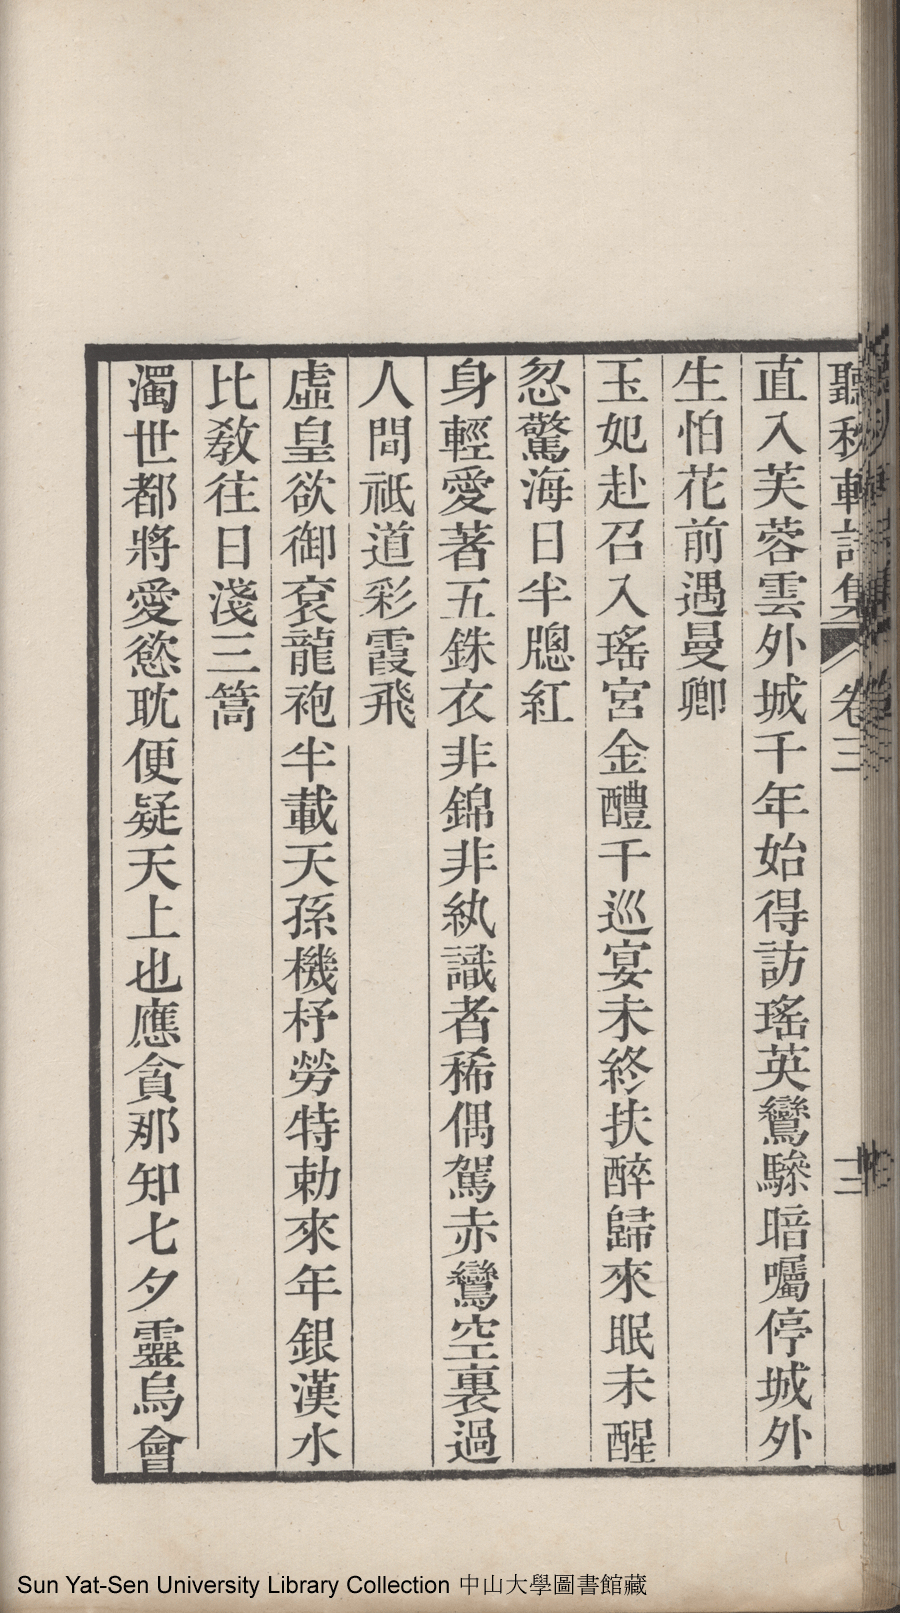 聽秋軒詩集 卷三 十三
直入芙蓉雲外城千年始得訪瑤英鸞驂暗囑停城外
生怕花前遇曼卿
玉妃赴召入瑤宮金醴千巡宴未終扶醉歸來眠未醒
忽驚海日半牕紅
身輕愛著五銖衣非錦非紈識者稀偶駕赤鸞空裏過
人間祗道彩霞飛
虛皇欲御袞龍袍半載天孫機杼勞特勅來年銀漢水
比敎往日淺三篙
濁世都將愛慾耽便疑天上也應貪那知七夕靈烏會
Sun Yat-Sen University Library Collection 中山大學圖書館藏